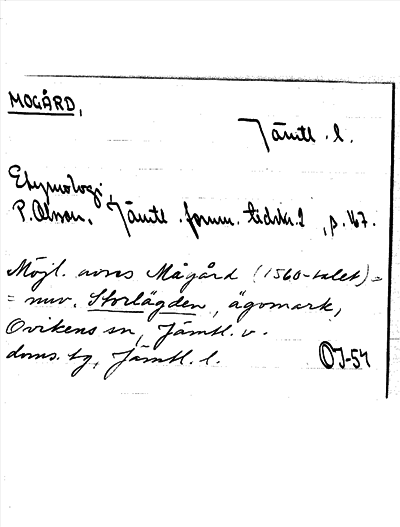 MOGÅRD,
Jämtl. l.
Etymologi,
P. Olsson, Jämtl. fornm. tidskr. 2, p. 167.
Möjl. avses Mågård (1560-talet) =
= nuv. Storlägden, ägomark,
Ovikens sn, Jämtl. v.
doms. tg, Jämtl. l.
OJ-54